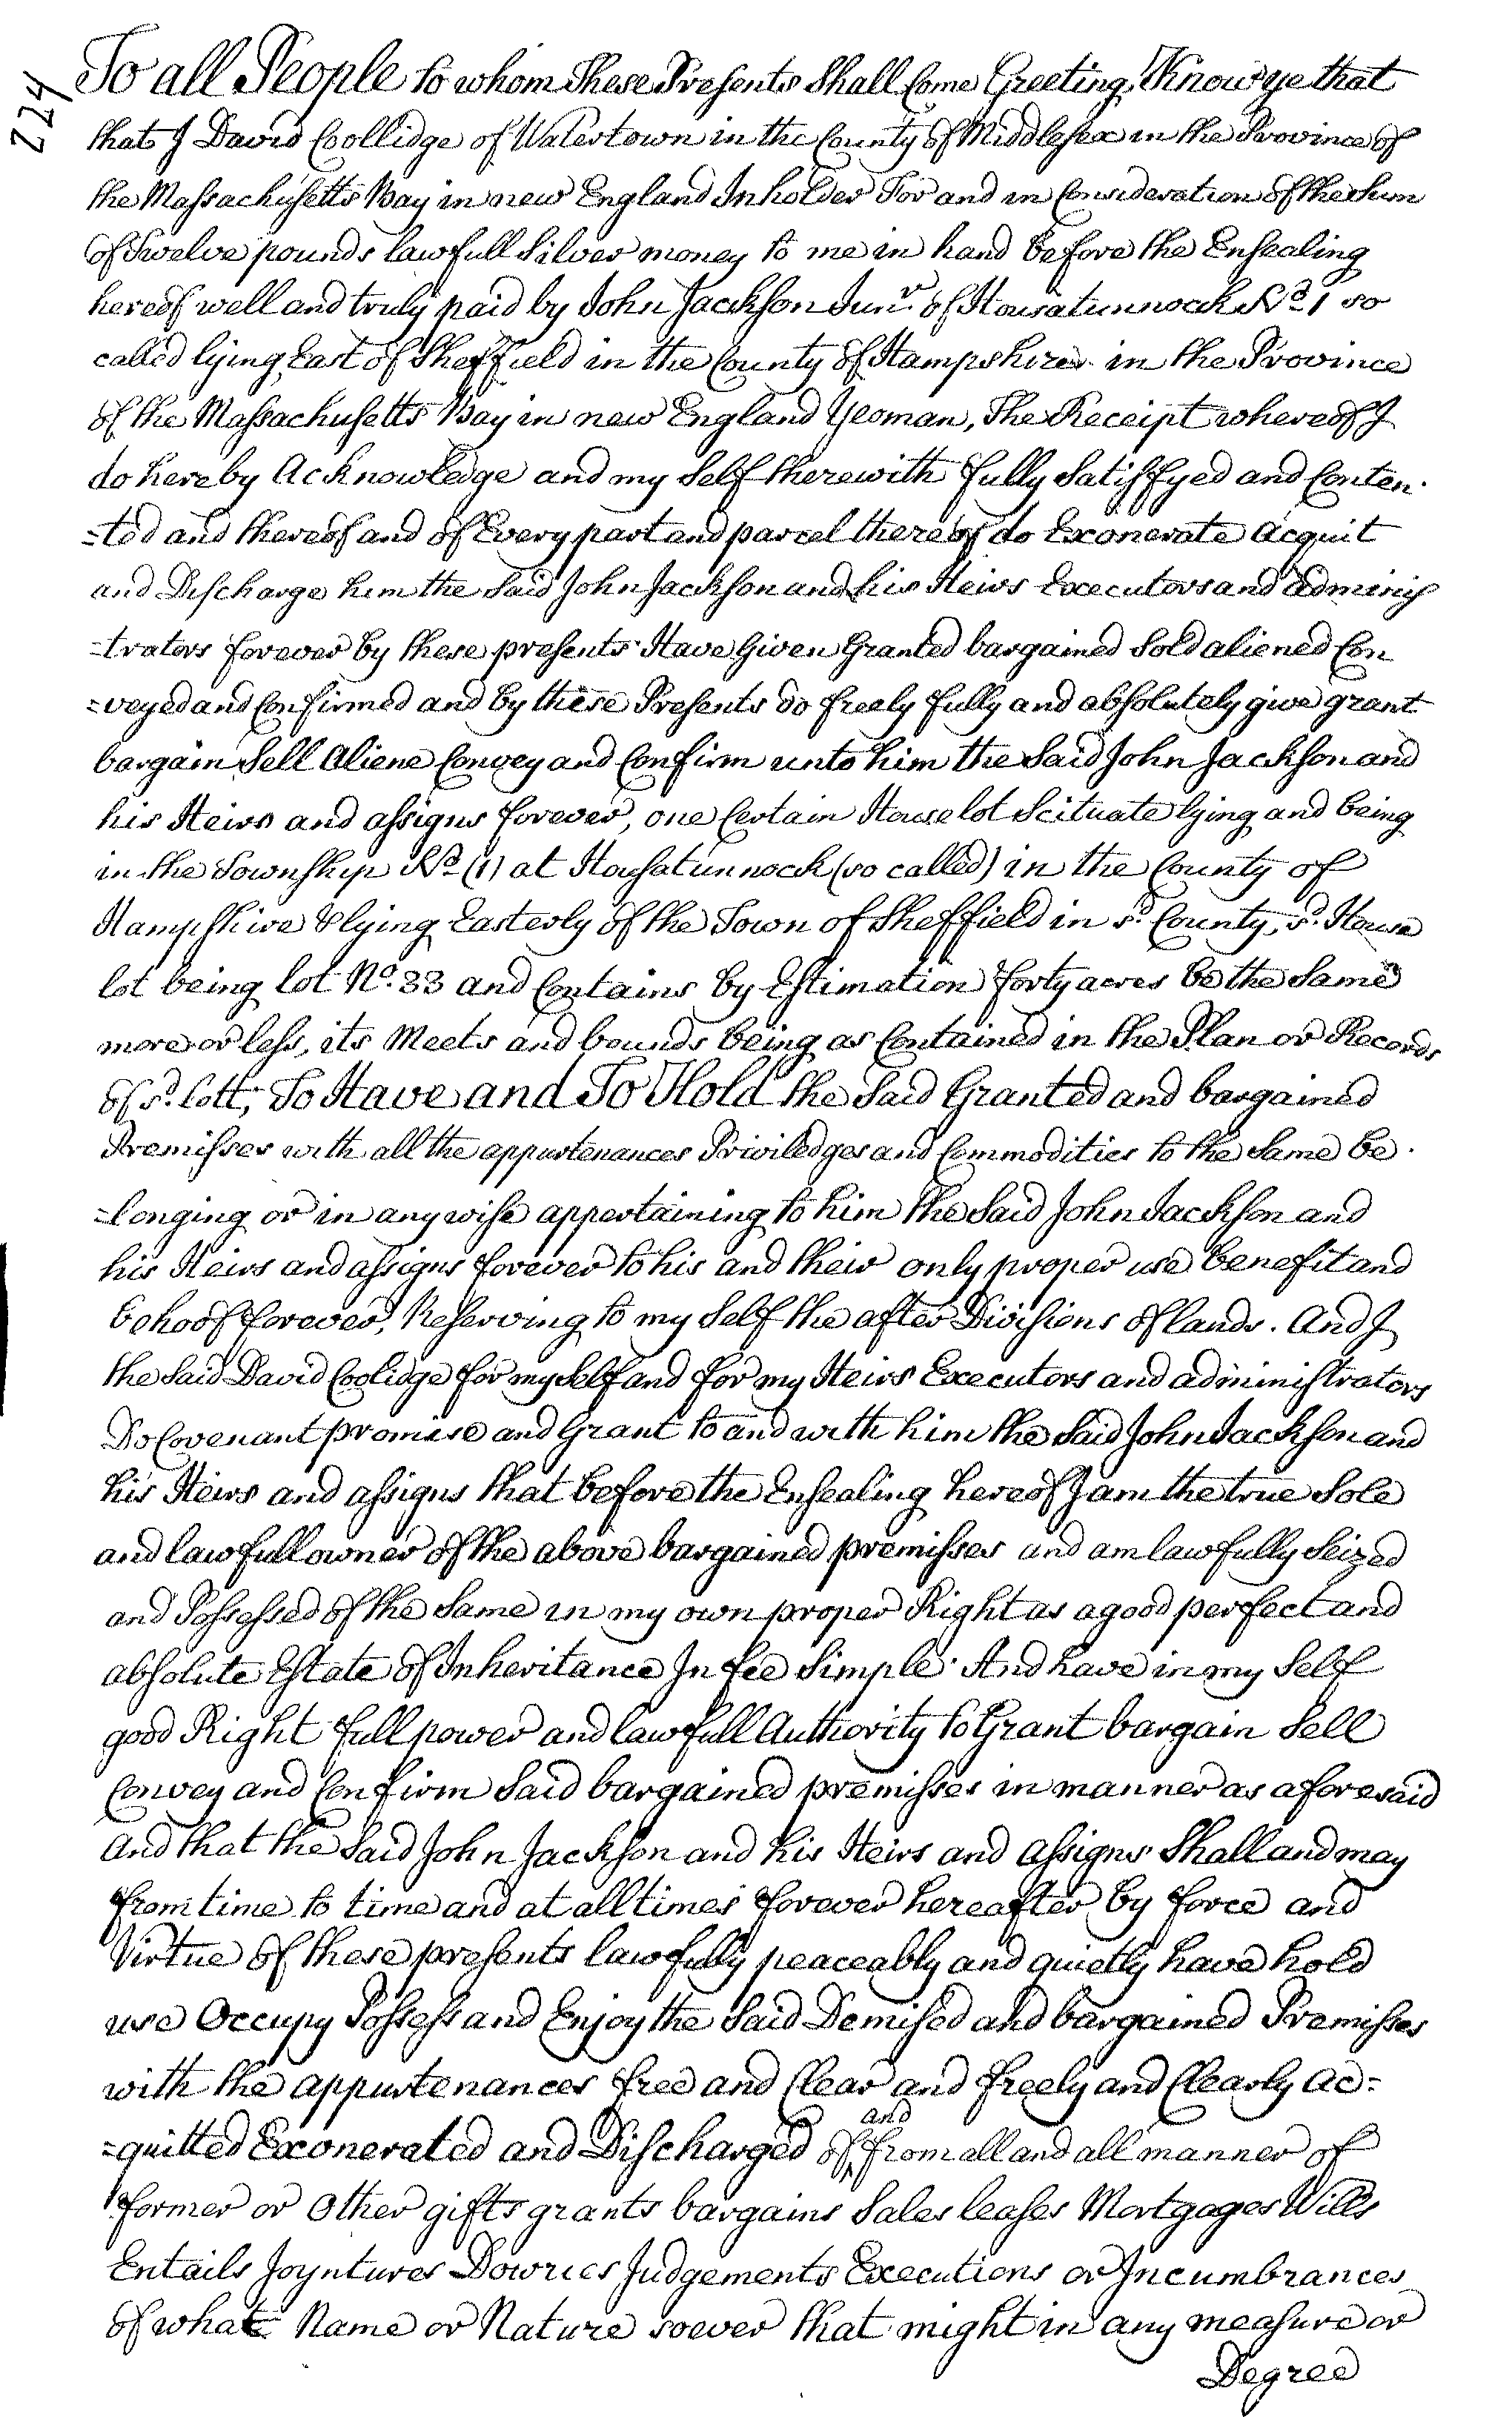 224
To all People to whom These Presents Shall Come Greeting, Know ye that
that I David Coollidge of Watertown in the County of Middlesex in the Province of
the Massachusetts Bay in new England Inholder For and in Consideration of the Sum
of Twelve pounds lawfull Silver money to me in hand before the Ensealing
hereof well and truly paid by John Jackson Junr. of Housatunnock No. 1 so
called lying East of Sheffield in the County of Hampshire in the Province
of the Massachusetts Bay in new England Yeoman, The Receipt whereof I
do hereby Acknowledge and my Self therewith fully Satisfyed and Conten-
-ted and thereof and of Every part and parcel thereof do Exonerate Acquit
and Discharge him the Said John Jackson and his Heirs Executors and Adminis
-trators forever by these presents Have Given Granted bargained Sold aliened Con
-veyed and Confirmed and by these Presents do freely fully and absolutely give grant
bargain Sell Aliene Convey and Confirm unto him the Said John Jackson and
his Heirs and assigns forever, one Certain House lot Scituate lying and being
in the Township No. (1) at Housatunnock (so called) in the County of
Hampshire & lying Easterly of the Town of Sheffield in sd. County, sd. House
lot being lot No. 33 and Contains by Estimation forty acres be the Same
more or less, its Meets and bounds being as Contained in the Plan or Records
of sd. lott; To Have and To Hold the Said Granted and bargained
Premisses with all the appurtenances Priviledges and Commodities to the Same be-
-longing or in any wise appertaining to him the Said John Jackson and
his Heirs and assigns forever to his and their only proper use benefit and
behoof forever, Reserving to my Self the after Divisions of lands. And I
the Said David Coolidge for my Self and for my Heirs Executors and administrators
Do Covenant promise and Grant to and with him the Said John Jackson and
his Heirs and assigns that before the Ensealing hereof I am the true Sole
and lawfull owner of the above bargained premisses and am lawfully Seized
and Possessed of the Same in my own proper Right as a good perfect and
absolute Estate of Inheritance In fee Simple. And have in my Self
good Right full power and lawfull Authority to Grant bargain Sell
Convey and Confirm Said bargained premisses in manner as aforesaid
And that the Said John Jackson and his Heirs and Assigns Shall and may
from time to time and at all times forever hereafter by force and
Virtue of these presents lawfully peaceably and quietly have hold
use Occupy Possess and Enjoy the Said Demised and bargained Premisses
with the appurtenances free and Clear and freely and Clearly Ac=
=quitted Exonerated and Discharged of and from all and all manner of
former or other gifts grants bargains Sales leases Mortgages Wills
Entails Joyntures Dowries Judgements Executions or Incumbrances
of what Name or Nature soever that might in any measure or
Degree